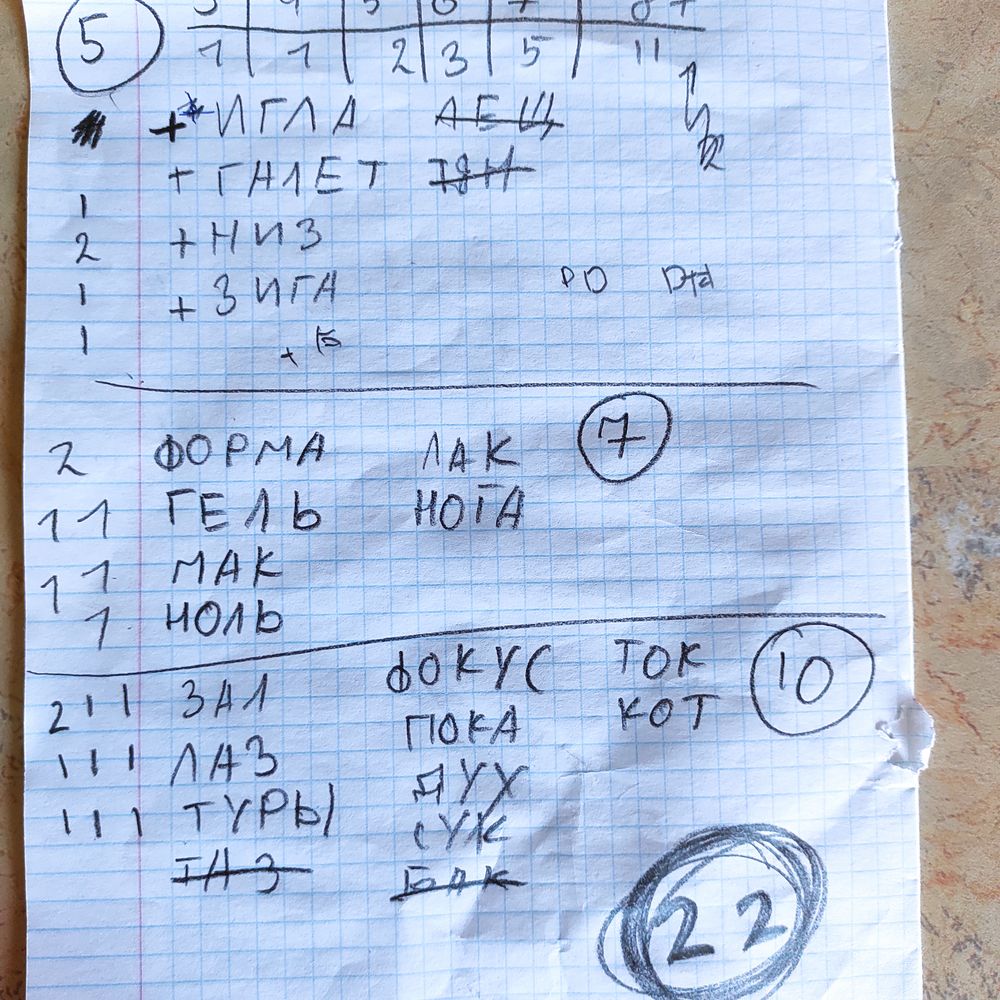 5
3 4 5 6 7 8+
1 1 2 3 5 11
+ ИГЛА АЕЩ
+ ГАЛЕТ
1
2 + НИЗ
1 + ЗИГА
1
2 ФОРМА ЛАК 7
1 1 ГЕЛЬ НОГА
1 1 МАК
1 НОЛЬ
2 1 1 ЗАЛ ФОКУС ТОК 10
1 1 1 ЛАЗ ПОКА КОТ
1 1 1 ТУРЫ ДУХ
СУК
ТАЗ БАК
22